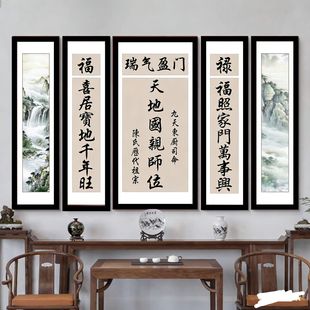 瑞气盈门
禄
福照家門萬事興
九天東廚司命
天地國親師位
陳氏歷代祖宗
福
喜居寶地千年旺